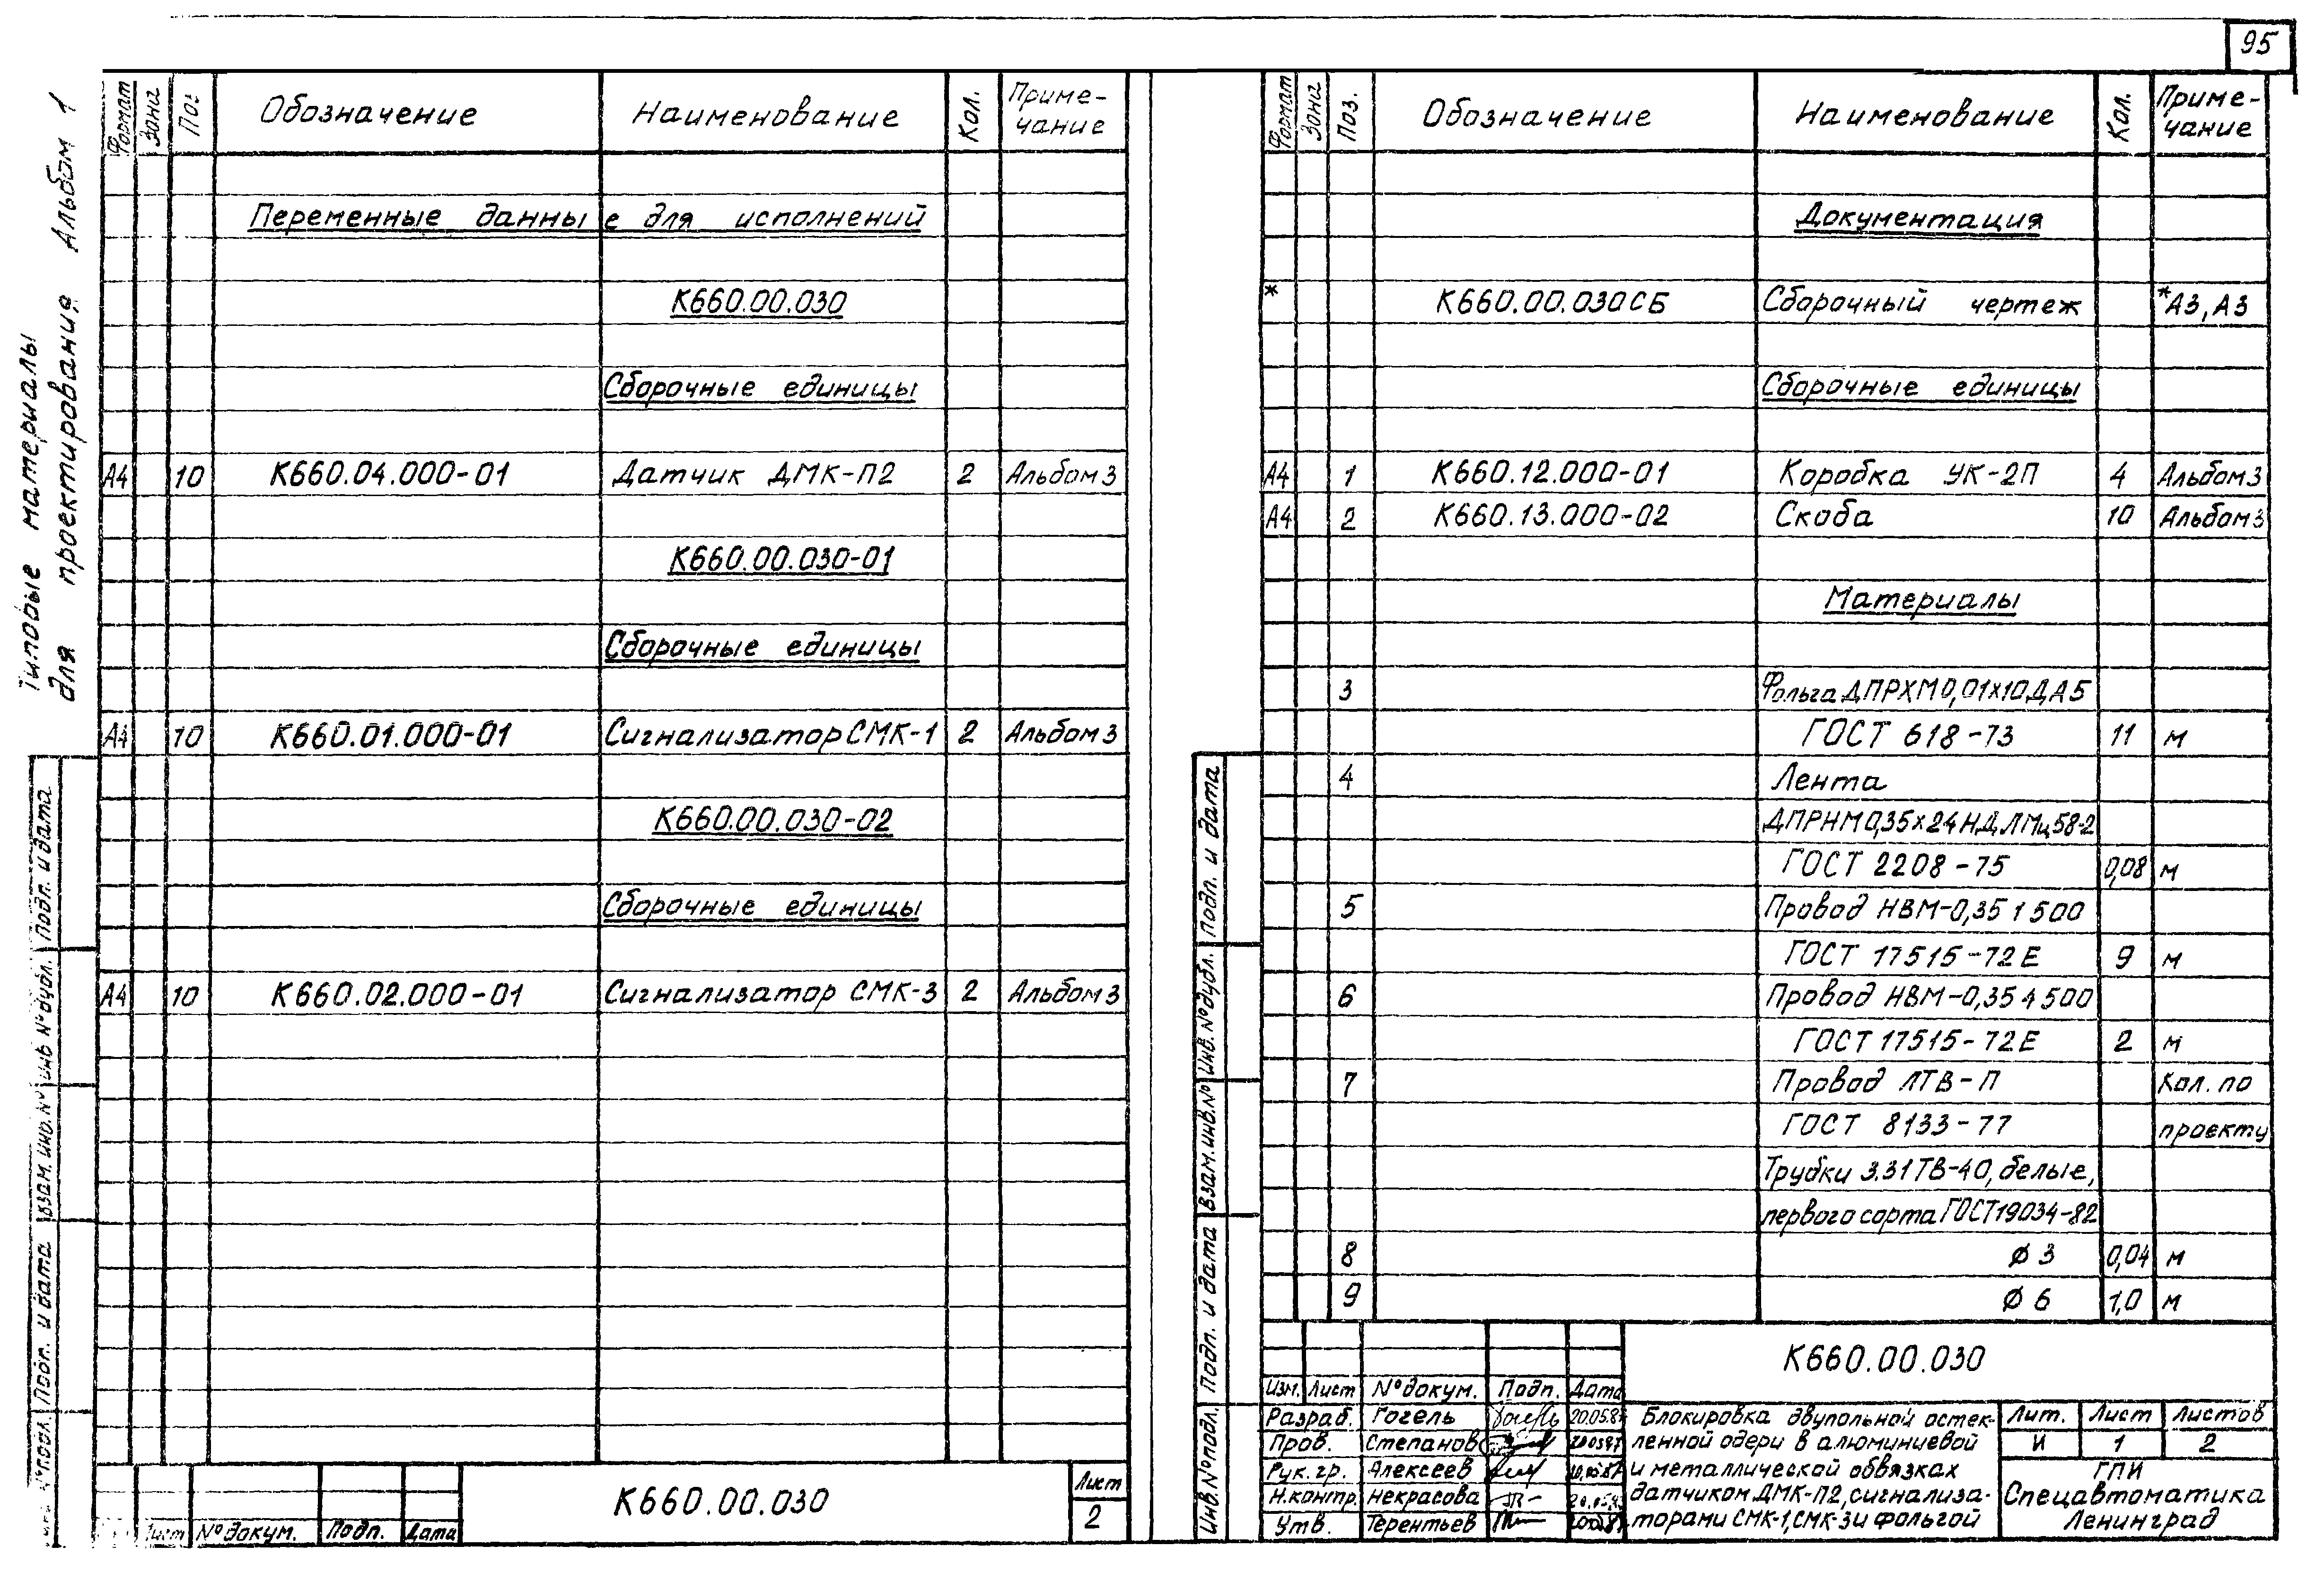 95
Типовые материалы
для проектирования Альбом 1
Формат Зона Поз. Обозначение Наименование Кол. Приме-
чание
Переменные данные для исполнений
К660.00.030
Сборочные единицы
А4 10 К660.04.000-01 Датчик ДМК-П2 2 Альбом 3
К660.00.030-01
Сборочные единицы
А4 10 К660.01.000-01 Сигнализатор СМК-1 2 Альбом 3
К660.00.030-02
Сборочные единицы
А4 10 К660.02.000-01 Сигнализатор СМК-3 2 Альбом 3
Подп. и дата
Инв. № дубл.
Взам. инв. №
Подп. и дата
Инв. № подл.
Лист № докум. Подп. Дата
К660.00.030
Лист
2
Формат Зона Поз. Обозначение Наименование Кол. Приме-
чание
Документация
* К660.00.030СБ Сборочный чертеж *А3, А3
Сборочные единицы
А4 1 К660.12.000-01 Коробка УК-2П 4 Альбом 3
А4 2 К660.13.000-02 Скоба 10 Альбом 3
Материалы
3 Фольга ДПРХМ0,01х10ДА5
ГОСТ 618-73 11 м
4 Лента
ДПРНМ0,35х24НДЛМц58-2
ГОСТ 2208-75 0,08 м
5 Провод НВМ-0,35 1 500
ГОСТ 17515-72Е 9 м
6 Провод НВМ-0,35 4 500
ГОСТ 17515-72Е 2 м
7 Провод ЛТВ-П Кол. по
ГОСТ 8133-77 проекту
Трубки 3.31ТВ-40, белые,
первого сорта ГОСТ19034-82
8 ∅ 3 0,04 м
9 ∅ 6 1,0 м
Подп. и дата
Инв. № дубл.
Взам. инв. №
Подп. и дата
Инв. № подл.
К660.00.030
Изм. Лист № докум. Подп. Дата
Разраб. Гогель 20.05.87
Пров. Степанов
Рук. гр. Алексеев
Н.контр. Некрасова
Утв. Терентьев
Блокировка двупольной остек-
ленной двери в алюминиевой
и металлической обвязках
датчиком ДМК-П2, сигнализа-
торами СМК-1, СМК-3 и фольгой
Лит. Лист Листов
И 1 2
ГПИ
Спецавтоматика
Ленинград